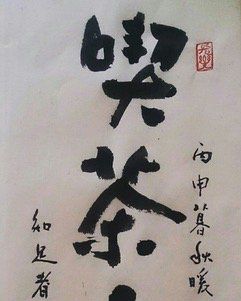 丙申暮秋暖
喫茶
知足者